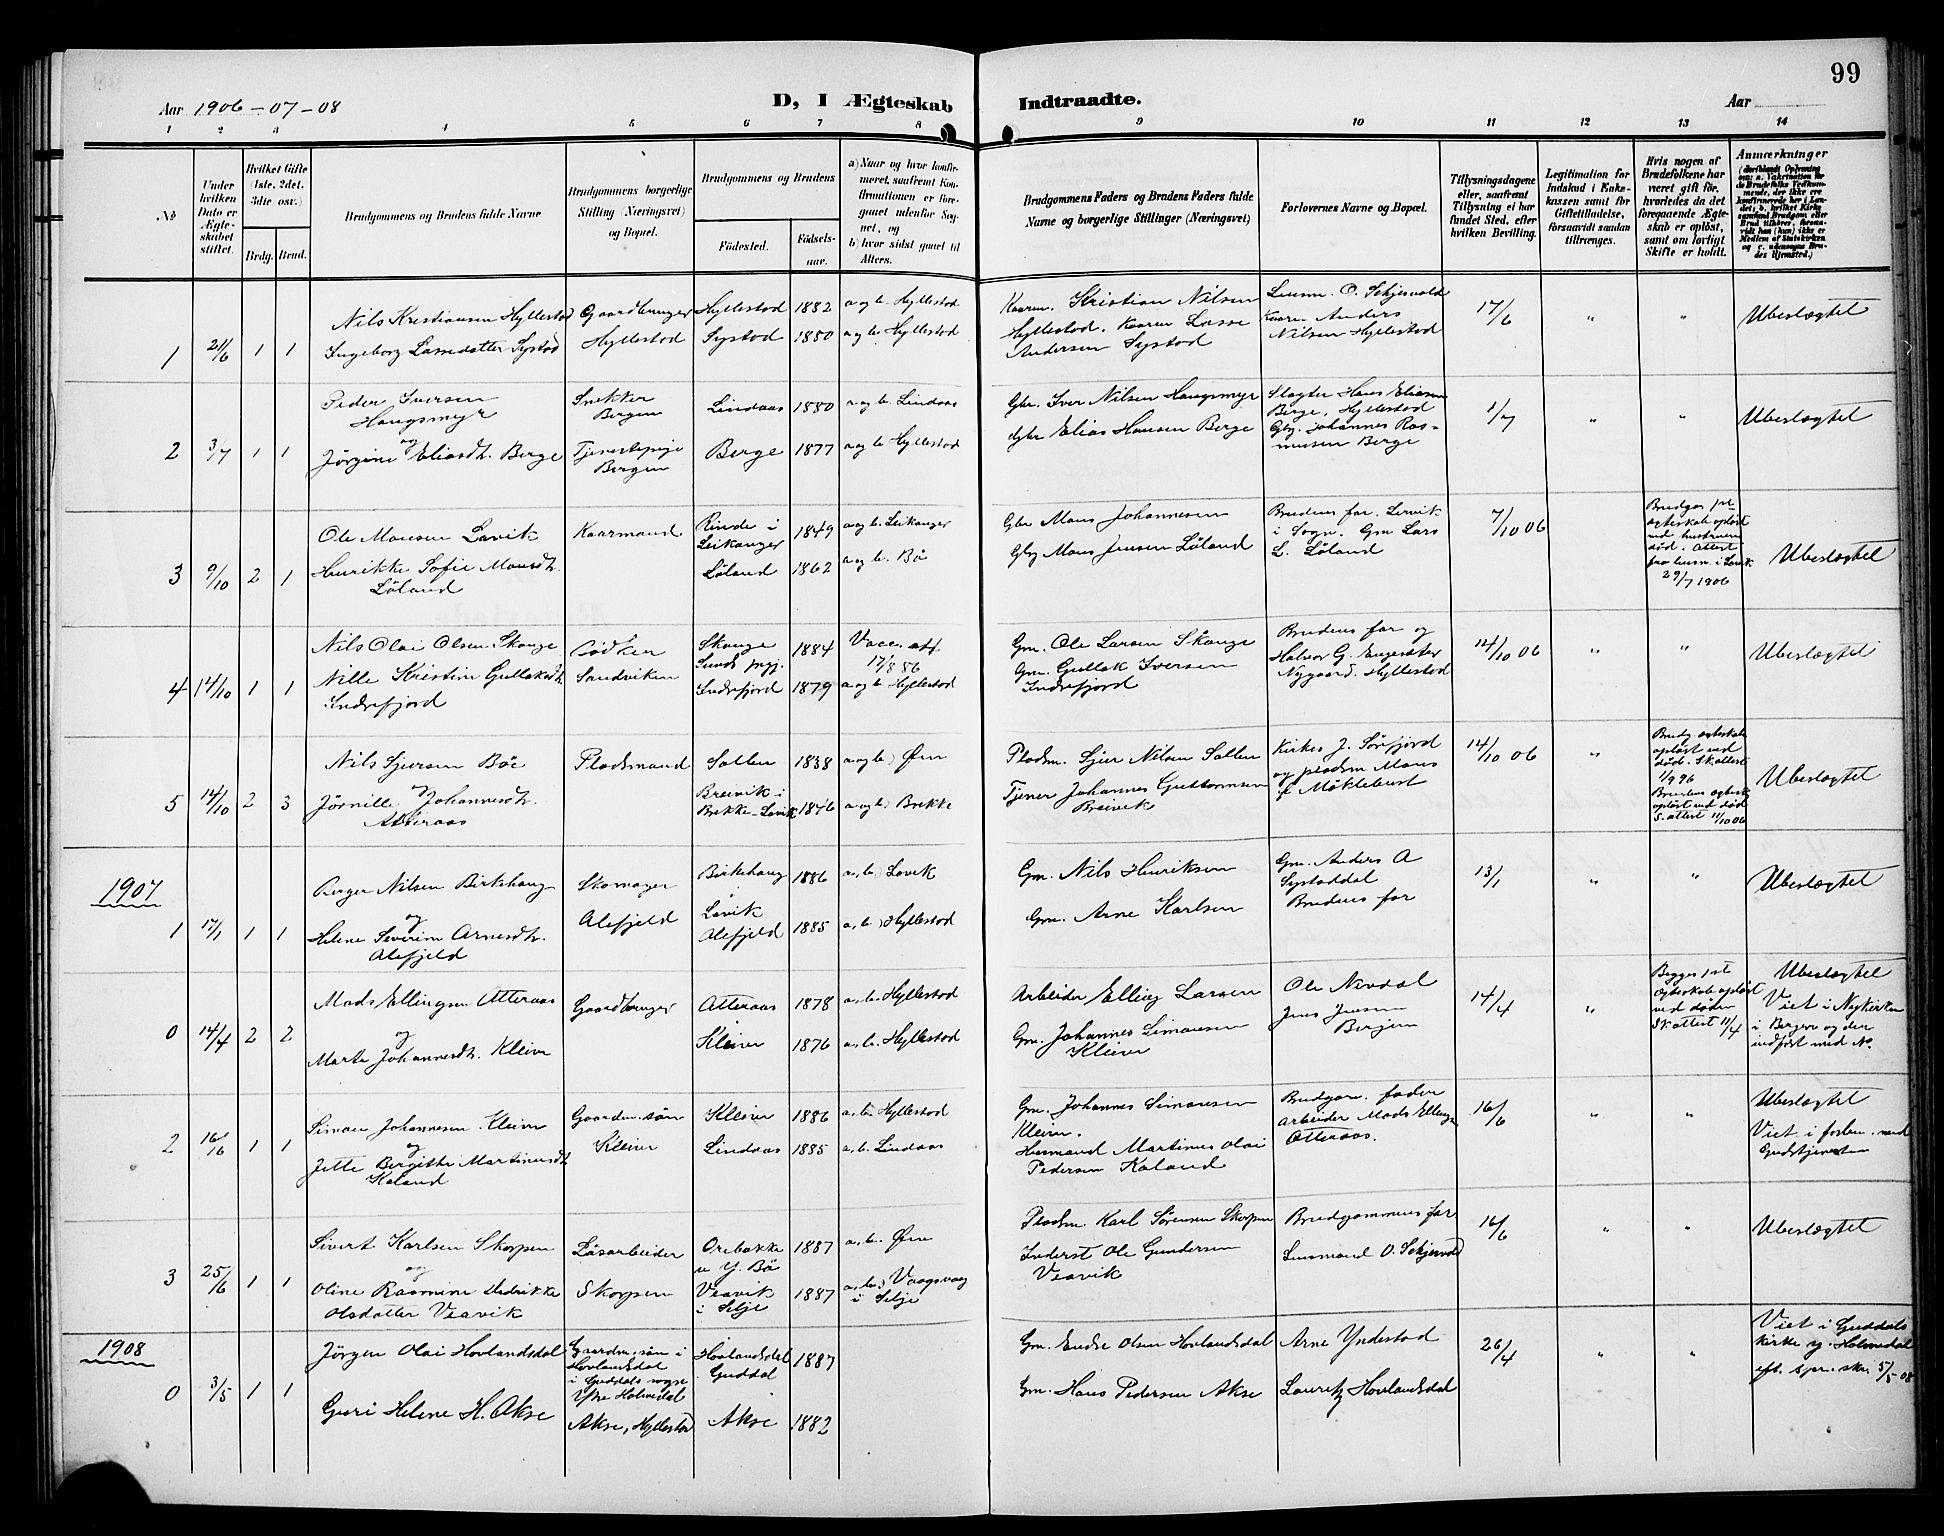 99
Aar 1906-07-08
D, I Ægteskab Indtraadte.
Aar
1 2 3 4 5 6 7 8 9 10 11 12 13 14
No
Under hvilken Dato er Ægteskabet stiftet.
Hvilket Gifte (1ste, 2det, 3die osv.)
Brdg. Brud.
Brudgommens og Brudens fulde Navne
Brudgommens borgerlige Stilling (Næringsvei) og Bopæl.
Brudgommens og Brudens
Fødested.
Fødselsaar.
a) Naar og hvor konfirmeret, saafremt Konfirmationen er foregaaet udenfor Sognet, og
b) hvor sidst gaaet til Alters.
Brudgommens Faders og Brudens Faders fulde Navne og borgerlige Stillinger (Næringsvei)
Forlovernes Navne og Bopæl.
Tillysningsdagene eller, saafremt Tillysning ei har fundet Sted, efter hvilken Bevilling.
Legitimation for Indskud i Enkekassen samt for Giftetilladelse, forsaavidt saadan tiltrænges.
Hvis nogen af Brudefolkene har været gift før, hvorledes da det foregaaende Ægteskab er opløst, samt om lovligt Skifte er holdt.
Anmærkninger
1 21/6 1 1
Nils Kristiansen Hyllestad Gaardbruger Hyllestad 1882 a og b. Hyllestad
Ingeborg Lassedatter Systad Hyllestad Systad 1880 a og b. Hyllestad
Kaarm. Kristian Nilsen
Hyllestad. Kaarm Lasse
Andersen Systad
Lensm. O. Schjervold
Kaarm Anders
Nilsen Hyllestad
17/6 " " Ubeslægtet
2 3/7 1 1
Peder Iversen
Haugsmyr
og
Jørgine Eliasdt. Berge
Snekker
Bergen
Tjenestepige
Bergen
Lindaas 1880 a og b Lindaas
Berge 1877 a og b Hyllestad
Gbr. Iver Nilsen Haugsmyr
Gbr Elias Hansen Berge
Slagter Hans Eliassen
Berge, Hyllestad
Gbg. Johannes Rasmussen Berge
1/7 " " Ubeslægtet
3 9/10 2 1
Ole Monsen Lavik Kaarmand Rinde i
Leikanger 1849 a og b. Leikanger
Henrikke Sofie Monsdt.
Løland
Løland 1862 a og b. Bø
Gbr Mons Johannesen
Gbg Mons Jensen Løland
Brudens far. Lervik
i Sogn. Gm Lars
L. Løland
7/10 06
Brudgos 1ste
egteskab opløst
ved hustruens
død. Attest
fra lensm. i Lavik
29/7 1906
Ubeslægtet
4 14/10 1 1
Nils Olai Olsen Skauge Bødker Skauge
Sunds prgj. 1884 Vacc. att.
17/8 86
Nille Kristine Gullaksdt.
Indrefjord Sandviken Indrefjord 1879 a og b Hyllestad
Gm. Ole Larsen Skauge
Gm. Gullak Iversen
Indrefjord
Brudens far og
Halvor G. Engesæter
Nygaard. Hyllestad
14/10 06 " " Ubeslægtet
5 14/10 2 3
Nils Sjursen Bøe Pladsmand Sollen 1838 a og b) Øen
og
Jørnille Johannesdt.
Atteraas
Breivik i
Brekke-Lavik 1846 a og b) Brekke
Pladsm. Sjur Nilsen Sollen
Tjener Johannes Guttormsen
Breivik
Kirkes. J. Sørefjord
og pladsm Mons
Møklebust
14/10 06 "
Brudg. egteskab
opløst ved
død. Skattest
1/9 96
Brudens egtesk.
opløst ved død
S. attest 11/10 06
Ubeslægtet
1907
1 17/1 1 1
Berger Nilsen Birkehaug Skomager Birkehaug 1886 a, b) Lavik
og
Helene Severine Arnesdt.
Alefjeld
Alefjeld
Lavik
Alefjeld 1885 a, b) Hyllestad
Gm. Nils Henriksen
Gm. Arne Karlsen
Gm. Anders A
Systaddal
Brudens far
13/1 " " Ubeslægtet
0 14/4 2 2
Mads Ellingsen Atteraas Gaardbruger Atteraas 1878 a, b. Hyllestad
og
Marta Johannesdt. Kleiven Kleiven 1876 a, b. Hyllestad
Arbeider Elling Larsen
Gm. Johannes Simonsen
Kleiven
Ole Nordal
Jens Jensen
Bergen
14/4 "
Begges 1ste
egteskab opløst
ved døden
Skattest 11/4
Ubeslægtet
Viet i Nykirken
i Bergen og der
indført med No.
2 16/6 1 1
Simon Johannesen Kleiven Gaardm. søn Kleiven 1886 a, b. Hyllestad
og
Jette Bergitte Martinusdt.
Kaland
Kleiven Lindaas 1885 a, b. Lindaas
Gm. Johannes Simonsen
Kleiven.
Husmand Martinus Olai
Pedersen Kaland
Brudgom. fader
Arbeider Mads Ellings.
Atteraas.
16/6 " " Ubeslægtet
Viet i forbin. med
Gudstjenesten
3 25/6 1 1
Sivert Karlsen Skorpen Løsarbeider Orebakke
Y. Bø 1887 a, b. Øen
og
Oline Rasmine Hedrikke
Olsdatter Veavik
Skorpen Veavik
i Selje 1887 a, b) Vaagsvaag
i Selje
Pladsm. Karl Sørensen Skorpen
Inderst Ole Gundersen
Veavik
Brudgommens far
Lensmand O. Schjervold
16/6 " " Ubeslægtet
1908
0 3/5 1 1
Jørgen Olai Hovlandsdal Gaardm. søn i
Hovlandsdal
i Guddals sogn
Ytre Holmedal
Hovlandsdal
Guddal 1887
Guri Helene H. Akse Akse, Hyllestad Akse 1882
Gm. Endre Olsen Hovlandsdal
Gm. Hans Pedersen Akse
Arne Yndestad
Lauritz Hovlandsdal
26/4 " "
Viet i Guddals
kirke y. Holmedal
eft. spr. skr. 5/5 08